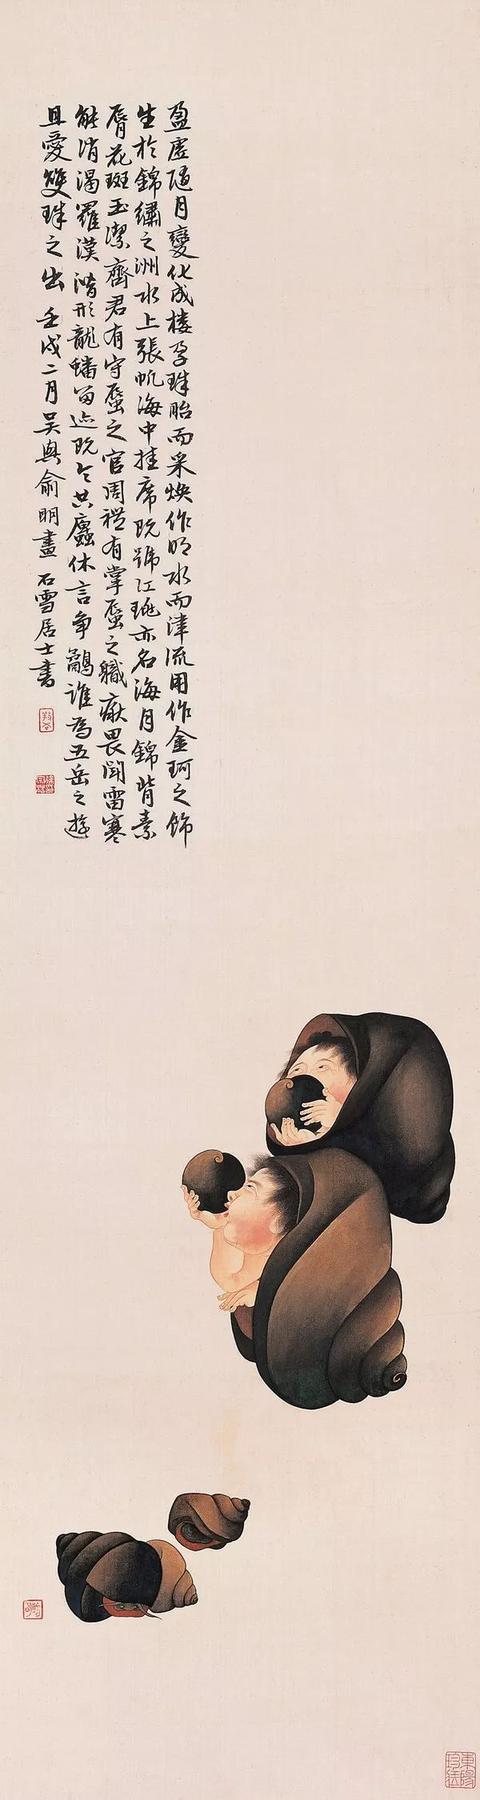 盈虛隨月變化成樓孕珠胎而采煥作明水而津流用作金珂之飾
生於錦繡之洲水上張帆海中挂席既號江珧亦名海月錦背素
脣花斑玉潔齊君有守蜃之官周禮有掌蜃之職厭畏聞雷寒
能消渴羅漢潛形龍蟠留迹既令共廬休言爭鷸誰為五岳之遊
且愛雙珠之出 壬戌二月吳興俞明畫 石雪居士書